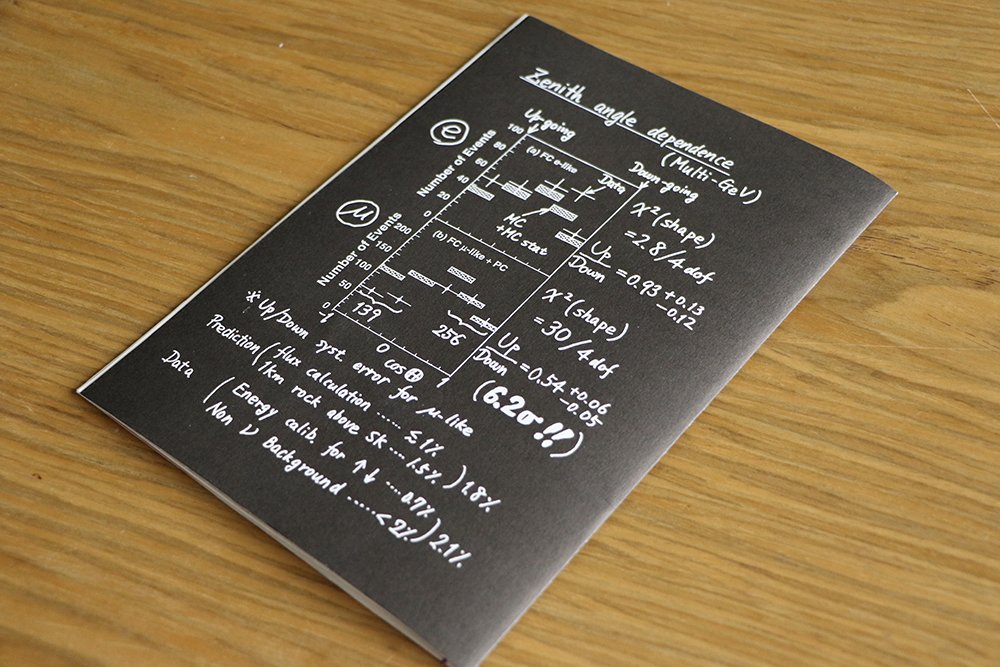 Zenith angle dependence
(Multi-GeV)
Up-going
Down-going
e
Number of Events
100
80
60
40
20
0
(a) FC e-like
Data
MC
+MC stat
χ²(shape)
=2.8/4 dof
Up/Down =0.93 +0.13 −0.12
μ
Number of Events
200
150
100
50
0
(b) FC μ-like + PC
139
256
-1
0
1
cos Θ
χ²(shape)
=30/4 dof
Up/Down =0.54 +0.06 −0.05
(6.2σ!!)
※ Up/Down syst. error for μ-like
Prediction (flux calculation ...... ≲1%
1km rock above SK .... 1.5%) 1.8%
Data (Energy calib. for ↑↓ .... 0.7%
Non ν Background ...... < 2%) 2.1%